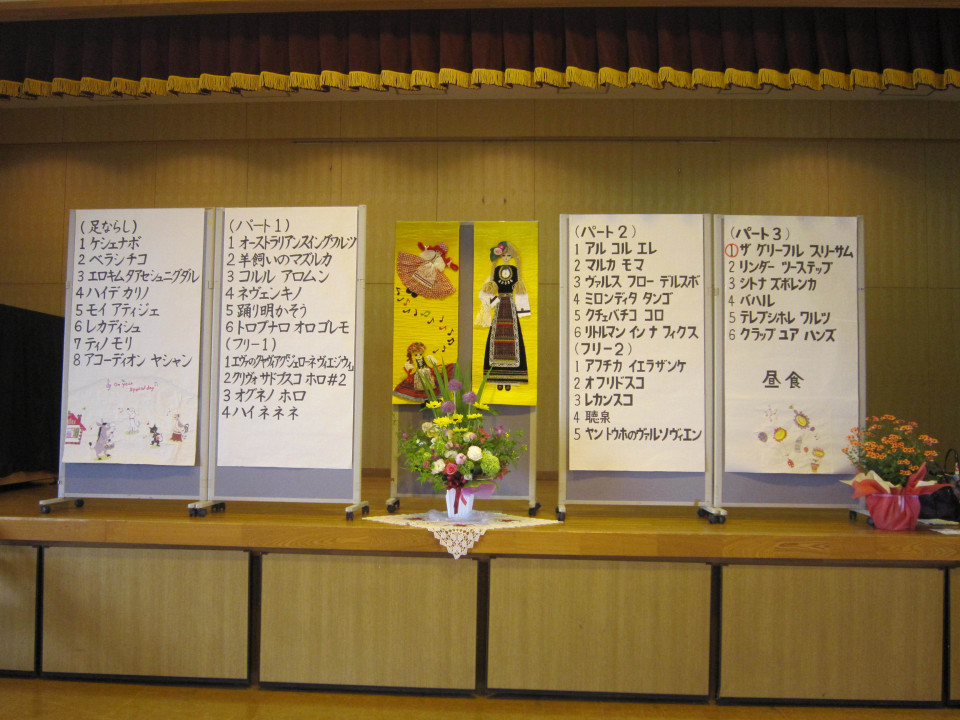 (足ならし)
1 ケシェナボ
2 ベラシチコ
3 エロキムタアセシュニグダル
4 ハイデ カリノ
5 モイ アティジェ
6 レカディシュ
7 ティノ モリ
8 アコーディオン ヤシャン
(パート1)
1 オーストラリアンスイングワルツ
2 羊飼いのマズルカ
3 コルル アロムン
4 ネヴェンキノ
5 踊り明かそう
6 トロプナロ オロ ゴレモ
(フリー1)
2 クリヴォ サドフスコ ホロ#2
3 オグネノ ホロ
4 ハイ ネネネ
(パート2)
1 アル コル エレ
2 マルカ モマ
3 ヴァルス フロー デルスボ
4 ミロンディタ タンゴ
5 クチェバチコ コロ
6 リトルマン イン ナ フィクス
(フリー2)
1 アフチカ イエラザンケ
2 オフリドスコ
3 レカンスコ
4 聴泉
5 ヤン トウホのヴァルソヴィエン
(パート3)
① ザ グリーフル スリーサム
2 リンダー ツーステップ
3 シトナ ズボレンカ
4 バハル
5 テレプシホレ ワルツ
6 クラップ ユア ハンズ
昼食